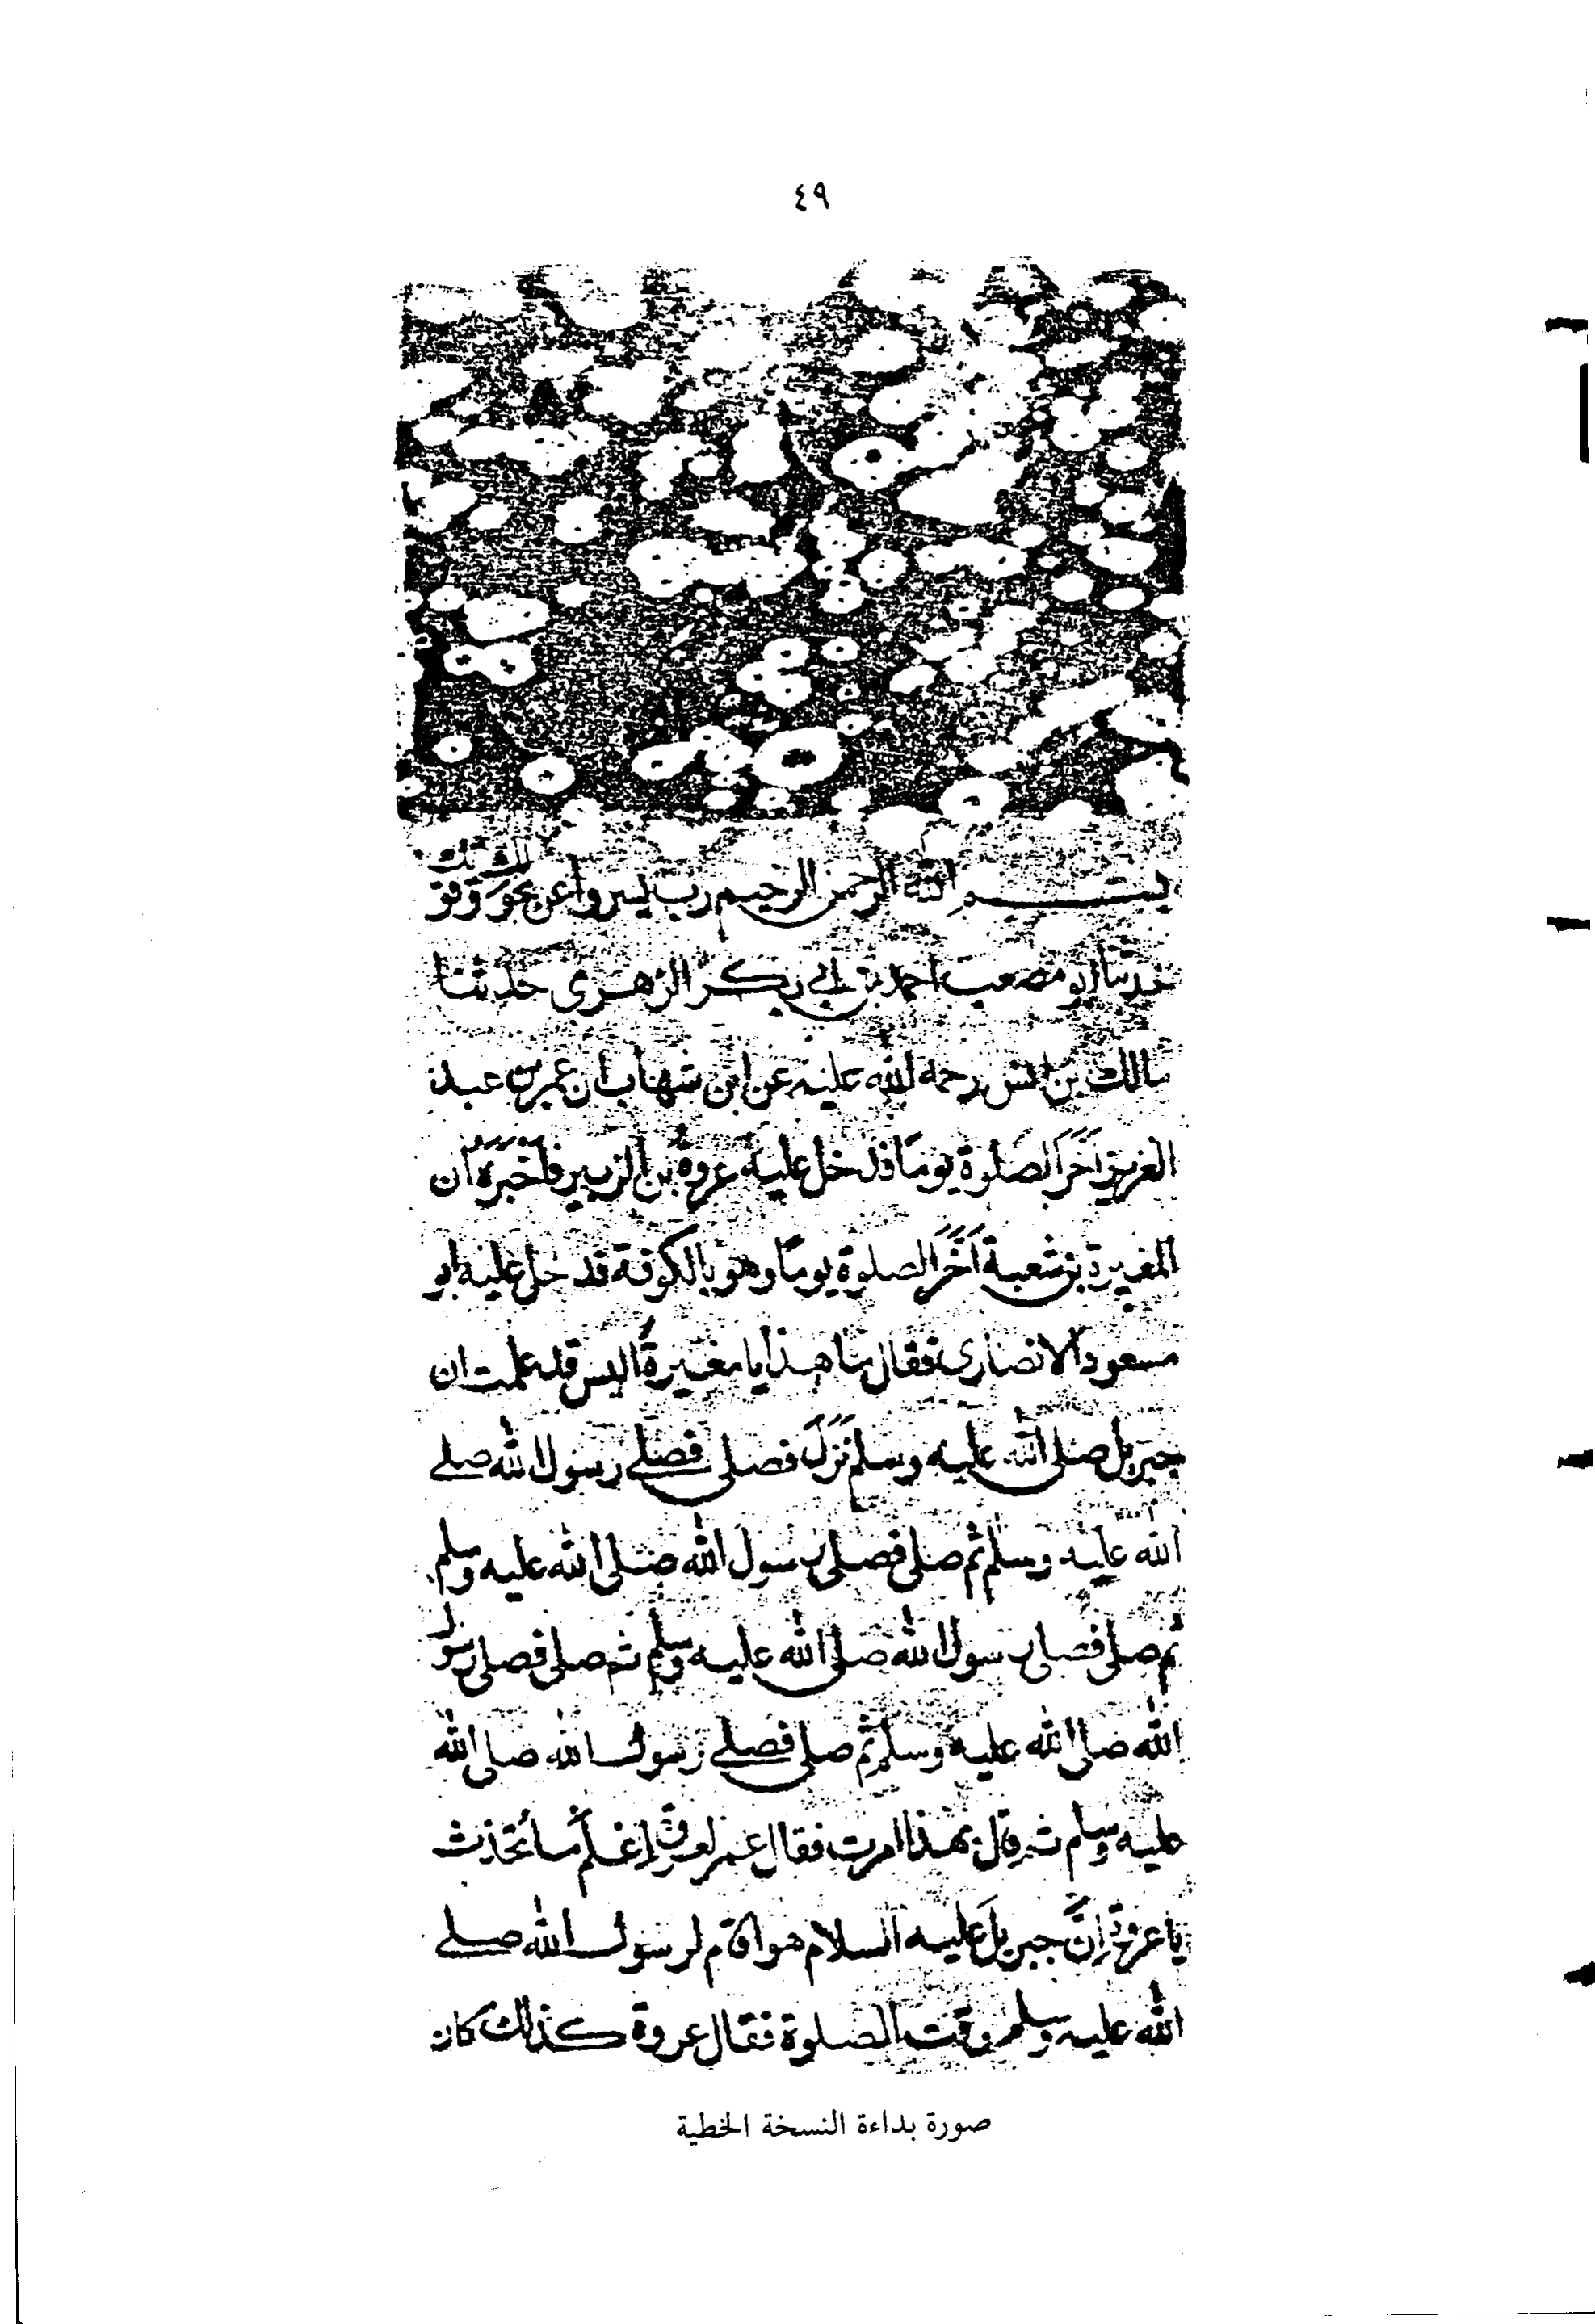 ٤٩
بسم الله الرحمن الرحيم رب يسر واعن بجودك وفق
حدثنا ابو مصعب احمد بن ابي بكر الزهري حدثنا
مالك بن انس رحمة الله عليه عن ابن شهاب ان عمر بن عبد
العزيز اَخَّرَ الصَلوة يومًا فدخل عليه عروة بن الزبير فاَخبَرَهُ ان
المغيرة بن شعبة اَخَّرَ الصلوة يومًا وهو بالكوفة فدخل عليه ابو
مسعود الانصاري فقال ما هذا يا مغيرةُ اليس قد علمت ان
جبريل صلى الله عليه وسلم نَزَلَ فصلى فصلى رسول الله صلى
الله عليه وسلم ثم صلى فصلى رسول الله صلى الله عليه وسلم
ثم صلى فصلى رسول الله صلى الله عليه وسلم ثم صلى فصلى رسول
الله صلى الله عليه وسلم ثم صلى فصلى رسول الله صلى الله
عليه وسلم ثم قال بهذا امرت فقال عمر لعروة اِعْلَمْ ما تُحَدِّث
يا عروة اِنَّ جبريلَ عليه السلام هو اقام لرسول الله صلى
الله عليه وسلم وقت الصلوة فقال عروة كذلك كان
صورة بداءة النسخة الخطية